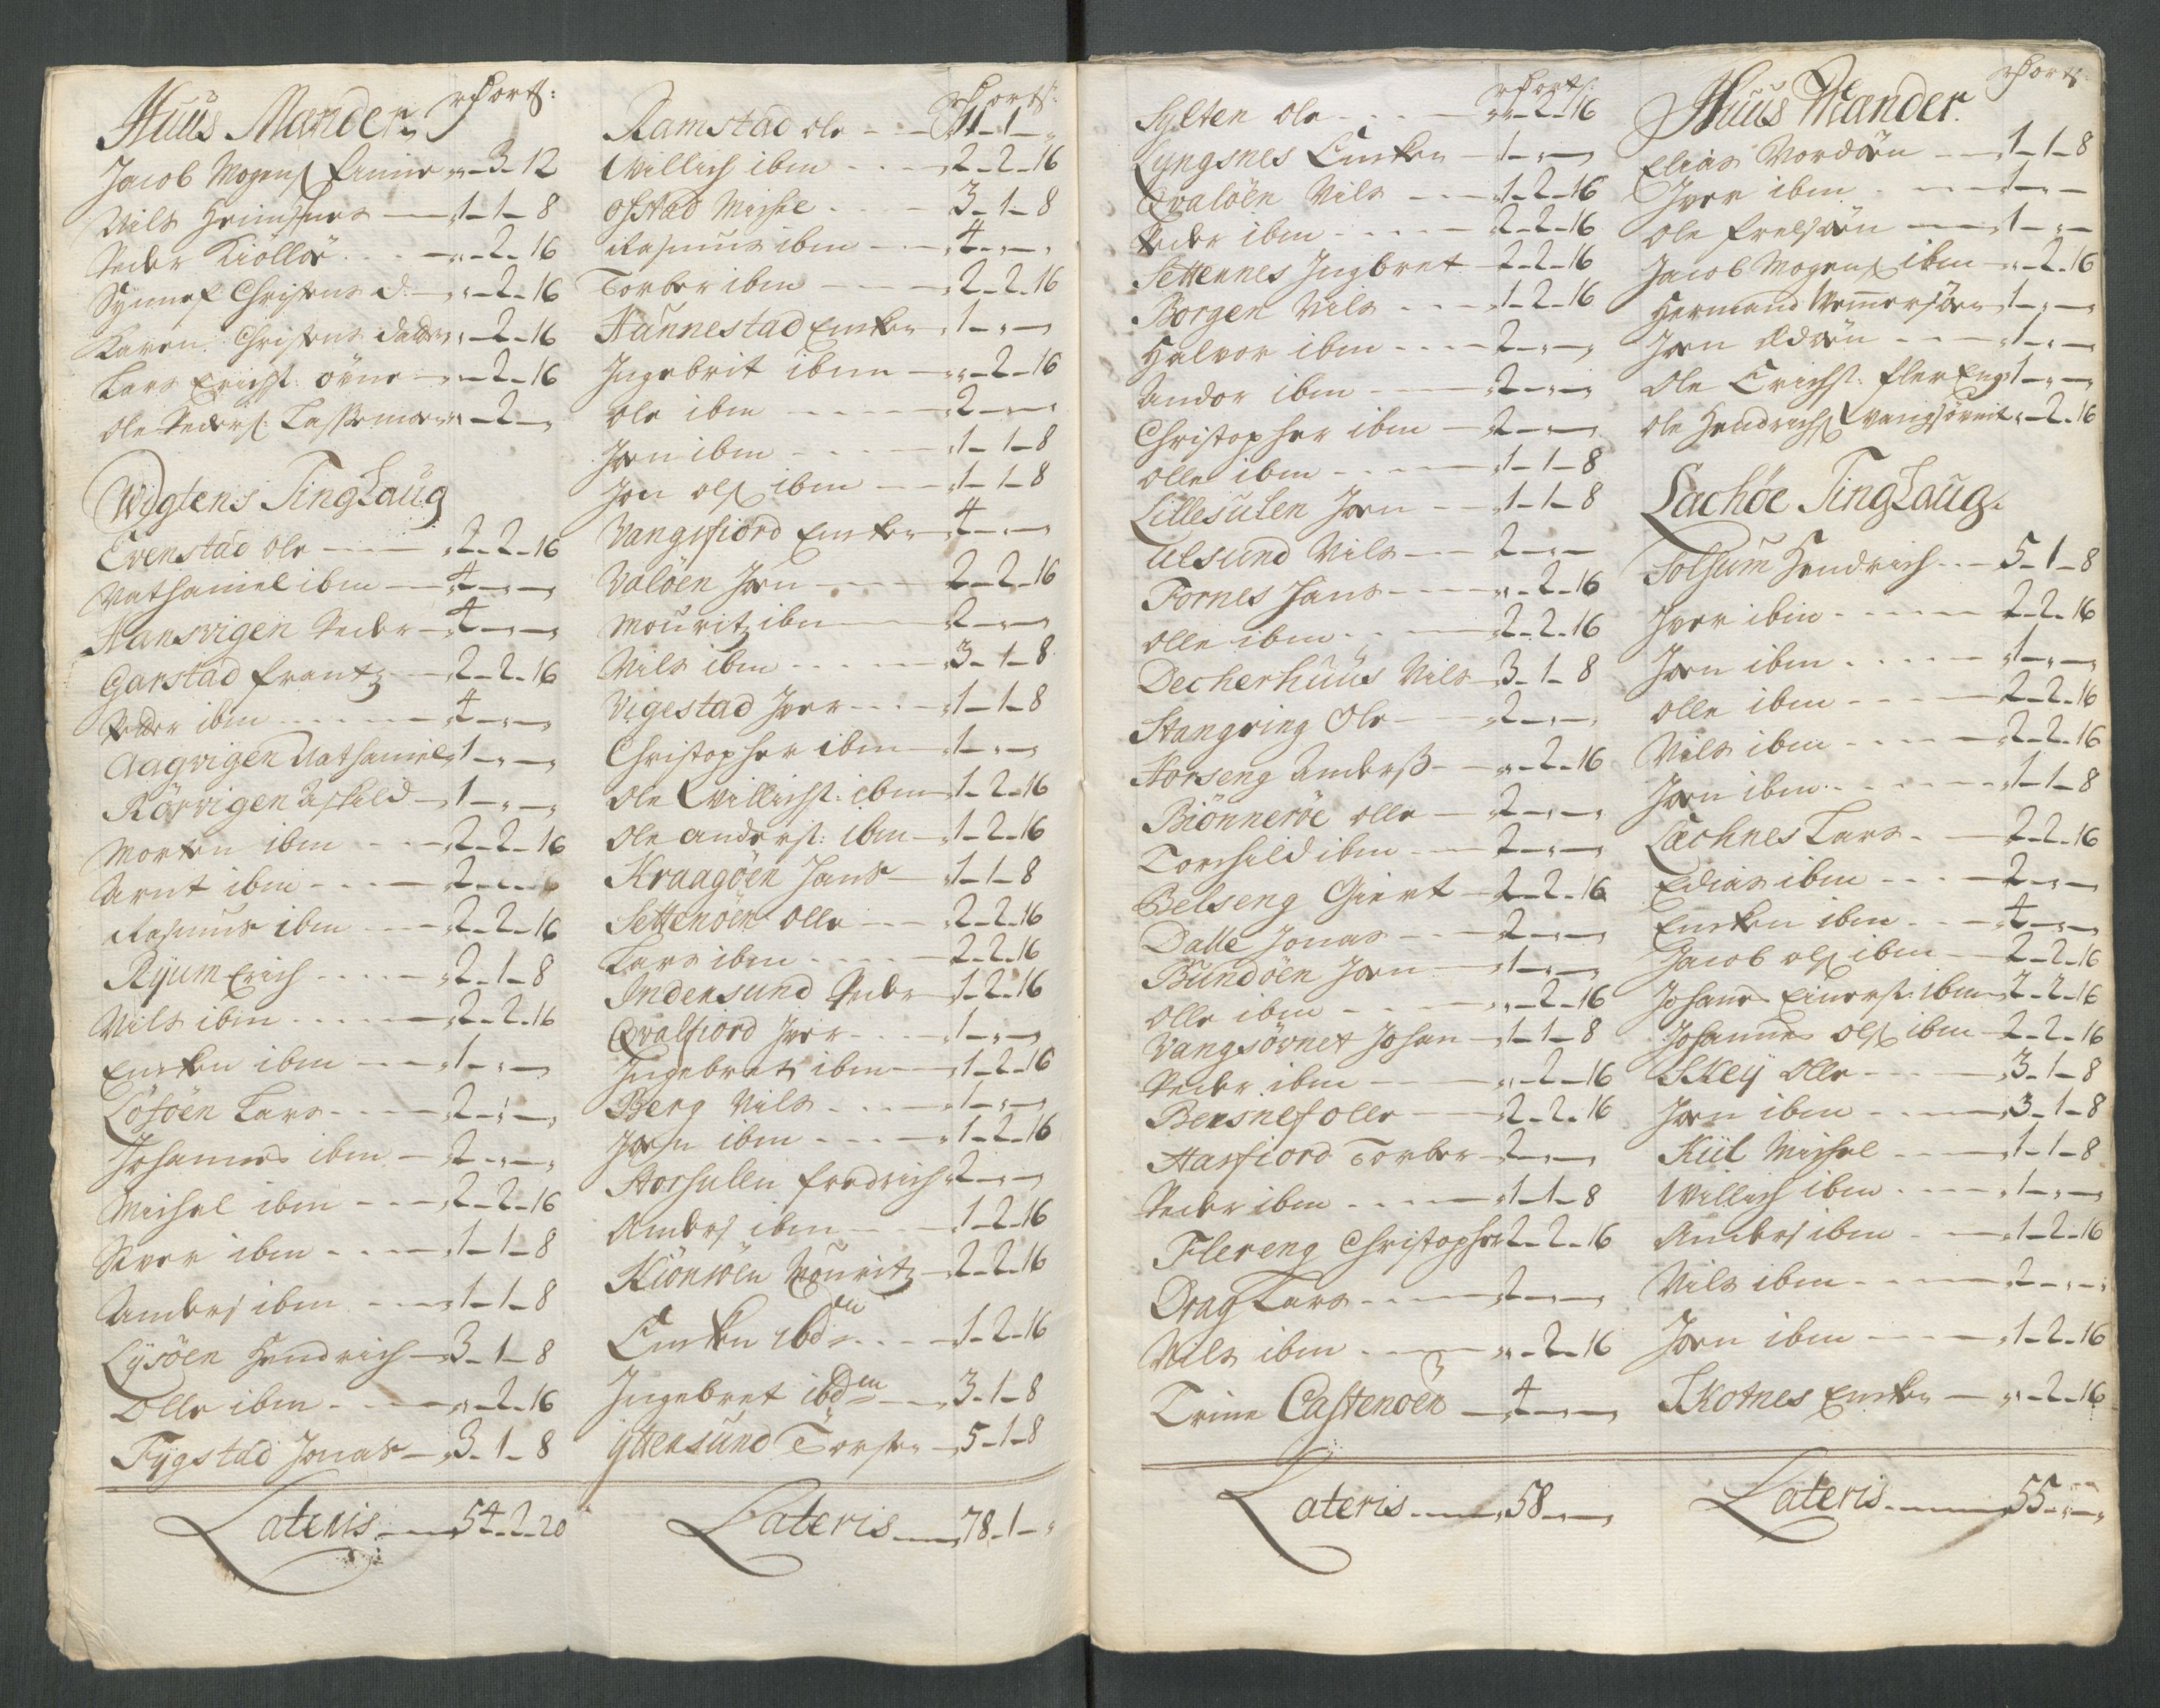 Huus Mander
Jacob Mogens: finne „-3-12
Nils Heimsnes 1-1-8
Peder Kiöllöe „-2-16
Synnef Christens d. „-2-16
Karen Christens datter „-2-16
Lars Erichs: övne „-2-16
Ole Peders: „-2-„
Wigtens TingLaug
Evenstad Ole 2-2-16
Nathaniel ibm 4-„-„
Hansvigen Peder 4-„-„
Garstad frantz 2-2-16
Peder ibm 4-„-„
Aagvigen Nathaniel 1-„-„
Rörvigen Askild 1-„-„
Morten ibm 2-2-16
Arnt ibm 2-„-„
Rasmus ibm 2-2-16
Ryum Erich 2-1-8
Nils ibm 2-2-16
Encken ibm 1-„-„
Löföen Lars 2-„-„
Johannes ibm 2-„-„
Michel ibm 2-2-16
Siver ibm 1-1-8
Anders ibm 1-1-8
Lysöen Hendrich 3-1-8
Olle ibm „-2-16
Fygstad Jonas 3-1-8
Lateris 54-2-20
Ramstad Ole 1-1-„
Willich ibm 2-2-16
Ofstad Michel 3-1-8
Rasmus ibm 4-„-„
Torber ibm 2-2-16
Hannestad Encken 1-„-„
Ingebrit ibm „-2-16
Ole ibm 2-„-„
Joen ibm 1-1-8
Jon Ols: ibm 1-1-8
Vangsfiord Encken 4-„-„
Valöen Joen 2-2-16
Mouritz ibm 2-„-„
Nils ibm 3-1-8
Vigestad Iver 1-1-8
Christopher ibm 1-„-„
Ole Willichs: ibm 1-2-16
Ole Anders: ibm 1-2-16
Kraagöen Hans 1-1-8
Settenöen Olle 2-2-16
Lars ibm 2-2-16
Indensund Peder 1-2-16
Qvalfiord Iver 1-„-„
Ingebret ibm 1-2-16
Berg Nils 1-„-„
Joen ibm 1-2-16
Horsullen fredrich 2-„-„
Anders ibm 1-2-16
Skionsöen Mouritz 2-2-16
Encken ibdem 1-2-16
Ingebret ibdem 3-1-8
Yttensund Torsten 5-1-8
Lateris 78-1-„
Sylten Ole „-2-16
Lyngsnes Encken 1-„-„
Qvalöen Nils 1-2-16
Peder ibm 2-2-16
Settennes Ingbret 2-2-16
Borgen Nils 1-2-16
Halvor ibm 2-„-„
Andor ibm 2-„-„
Christopher ibm 2-„-„
Olle ibm 1-1-8
Lillesulen Joen 1-1-8
Ulsund Nils 2-„-„
Fornes Hans „-2-16
Olle ibm 2-2-16
Decherhuus Nils 3-1-8
Stangring Ole 2-„-„
Horseng Anders „-2-16
Biönneröe Olle 2-„-„
Torchild ibm 2-„-„
Belseng Giert 2-2-16
Dalle Jonas 2-„-„
Bundöen Joen 1-„-„
Olle ibm „-2-16
Vangsövnet Johan 1-1-8
Peder ibm „-2-16
Bensnes Olle 2-2-16
Harfiord Torber 2-„-„
Peder ibm 1-1-8
Flereng Christopher 2-2-16
Drag Lars 2-„-„
Nils ibm „-2-16
Trine Castenöen 4-„-„
Lateris 58-„-„
Huus Mander
Elias Nordöen 1-1-8
Iver ibm 1-„-„
Ole frelsöen 1-„-„
Jacob Mogens: ibm „-2-16
Hermand Nemmersöen 1-„-„
Joen Edöen 1-„-„
Ole Erichs: flereng 1-„-„
Ole Hendrichs: Vangsövnet „-2-16
Lachöe TingLaug.
Solsum Hendrich 5-1-8
Iver ibm 2-2-16
Joen ibm 1-„-„
Olle ibm 2-2-16
Nils ibm 2-2-16
Joen ibm 1-1-8
Lachnes Lars 2-2-16
Edias ibm 2-„-„
Encken ibm 4-„-„
Jacob Ols: ibm 2-2-16
Johannes Einers: ibm 2-2-16
Johannes Ols: ibm 2-2-16
Skey Olle 3-1-8
Joen ibm 3-1-8
Kiil Michel 1-1-8
Willich ibm 1-„-„
Anders ibm 1-2-16
Nils ibm 2-„-„
Joen ibm 1-2-16
Skotnes Encken „-2-16
Lateris 55-„-„